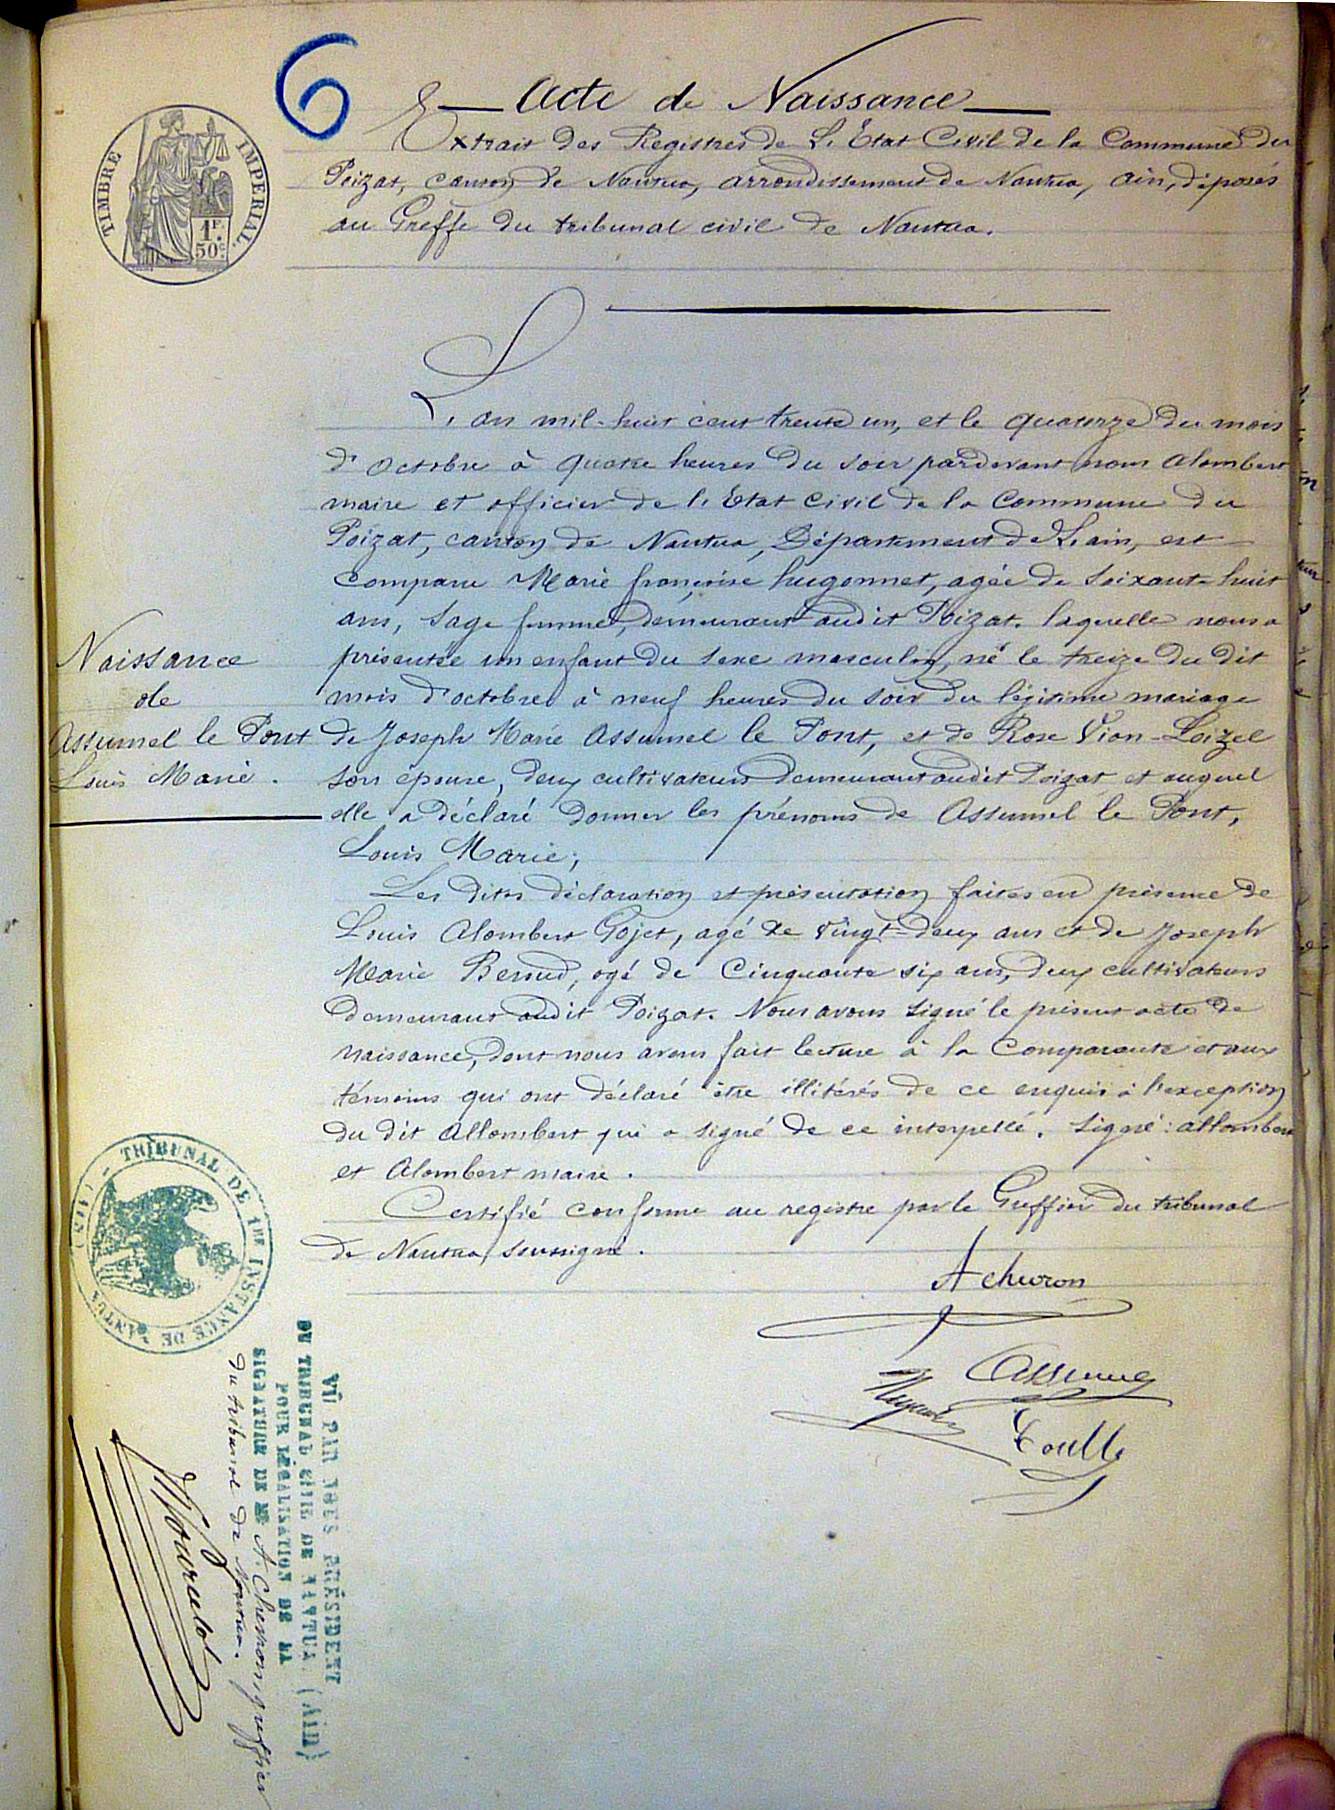 6
Acte de Naissance
Extrait des Registres de L'Etat Civil de la Commune du
Poizat, canton de Nantua, arrondissement de Nantua, ain, déposés
au Greffe du tribunal civil de Nantua.
TIMBRE IMPERIAL
1F.
50c.
L'an mil-huit cent trente un, et le quatorze du mois
d'octobre à quatre heures du soir pardevant nous Alombert
maire et officier de l'Etat civil de la Commune du
Poizat, canton de Nantua, Département de L'ain, est
comparu Marie françoise hugonnet, agée de soixante huit
ans, sage femme, demeurant audit Poizat. laquelle nous a
présentée un enfant du sexe masculin, né le treize du dit
mois d'octobre à neuf heures du soir du légitime mariage
de Joseph Marie Assumel le Pont, et de Rose Vion-Loizel
son épouse, deux cultivateurs demeurant audit Poizat et auquel
elle a déclaré donner les prénoms de Assumel le Pont,
Louis Marie;
Naissance
de
Assumel le Pont
Louis Marie.
Les dites déclaration et présentation faites en présence de
Louis Alombert Gojet, agé de vingt-deux ans et de Joseph
Marie Berrud, agé de cinquante six ans, deux cultivateurs
demeurant audit Poizat. Nous avons signé le présent acte de
naissance, dont nous avons fait lecture à la Comparante et aux
témoins qui ont déclaré être illitérés de ce enquis à l'exception
du dit Allombert qui a signé de ce interpellé. Signé: allombert
et Alombert maire.
Certifié conforme au registre par le Greffier du tribunal
de Nantua soussigné.
A chevron
Assumel
TRIBUNAL DE 1RE INSTANCE DE NANTUA (AIN)
VU PAR NOUS PRÉSIDENT
DU TRIBUNAL CIVIL DE NANTUA (Ain)
POUR LÉGALISATION DE LA
SIGNATURE DE MR A. Chevron, greffier
du tribunal de Nantua.